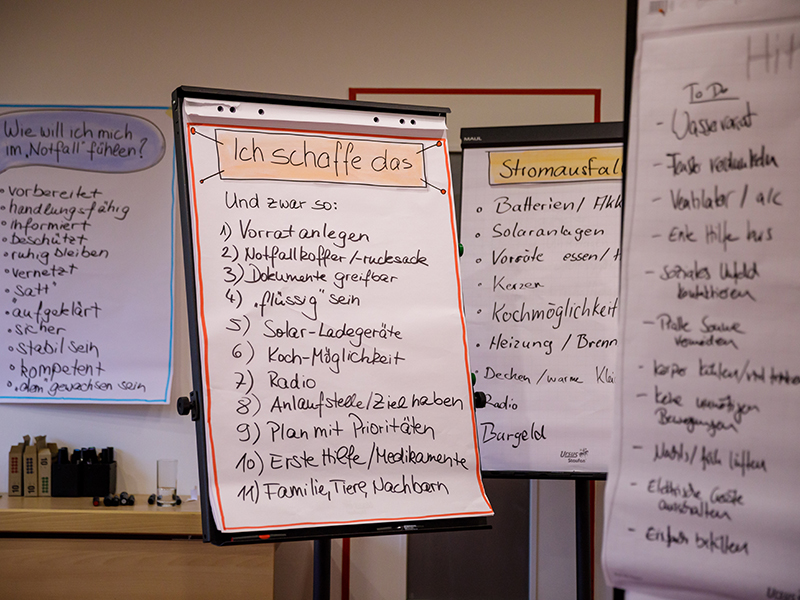 Wie will ich mich
im „Notfall" fühlen?
• vorbereitet
• handlungsfähig
• informiert
• beschützt
• ruhig bleiben
• vernetzt
• "satt"
• aufgeklärt
• sicher
• stabil sein
• kompetent
• "dem" gewachsen sein
Ich schaffe das
Und zwar so:
1) Vorrat anlegen
2) Notfallkoffer/-rucksack
3) Dokumente greifbar
4) „flüssig" sein
5) Solar-Ladegeräte
6) Koch-Möglichkeit
7) Radio
8) Anlaufstelle/Ziel haben
9) Plan mit Prioritäten
10) Erste Hilfe/Medikamente
11) Familie, Tiere, Nachbarn
MAUL
Stromausfall
• Batterien/
• Solaranlagen
• Vorräte essen/
• Kerzen
• Kochmöglichkeit
• Heizung / Brenn
• Decken/warme Klei
Radio
Bargeld
To Do
- Wasservorrat
- Fenster verdunkeln
- Ventilator / a/c
- Erste Hilfe
- soziales Umfeld
kontaktieren
- Pralle Sonne
vermeiden
- Körper kühlen/
- Keine unnötigen
Bewegungen
- Nachts/früh lüften
- Elektrische Geräte
ausschalten
- Einfach